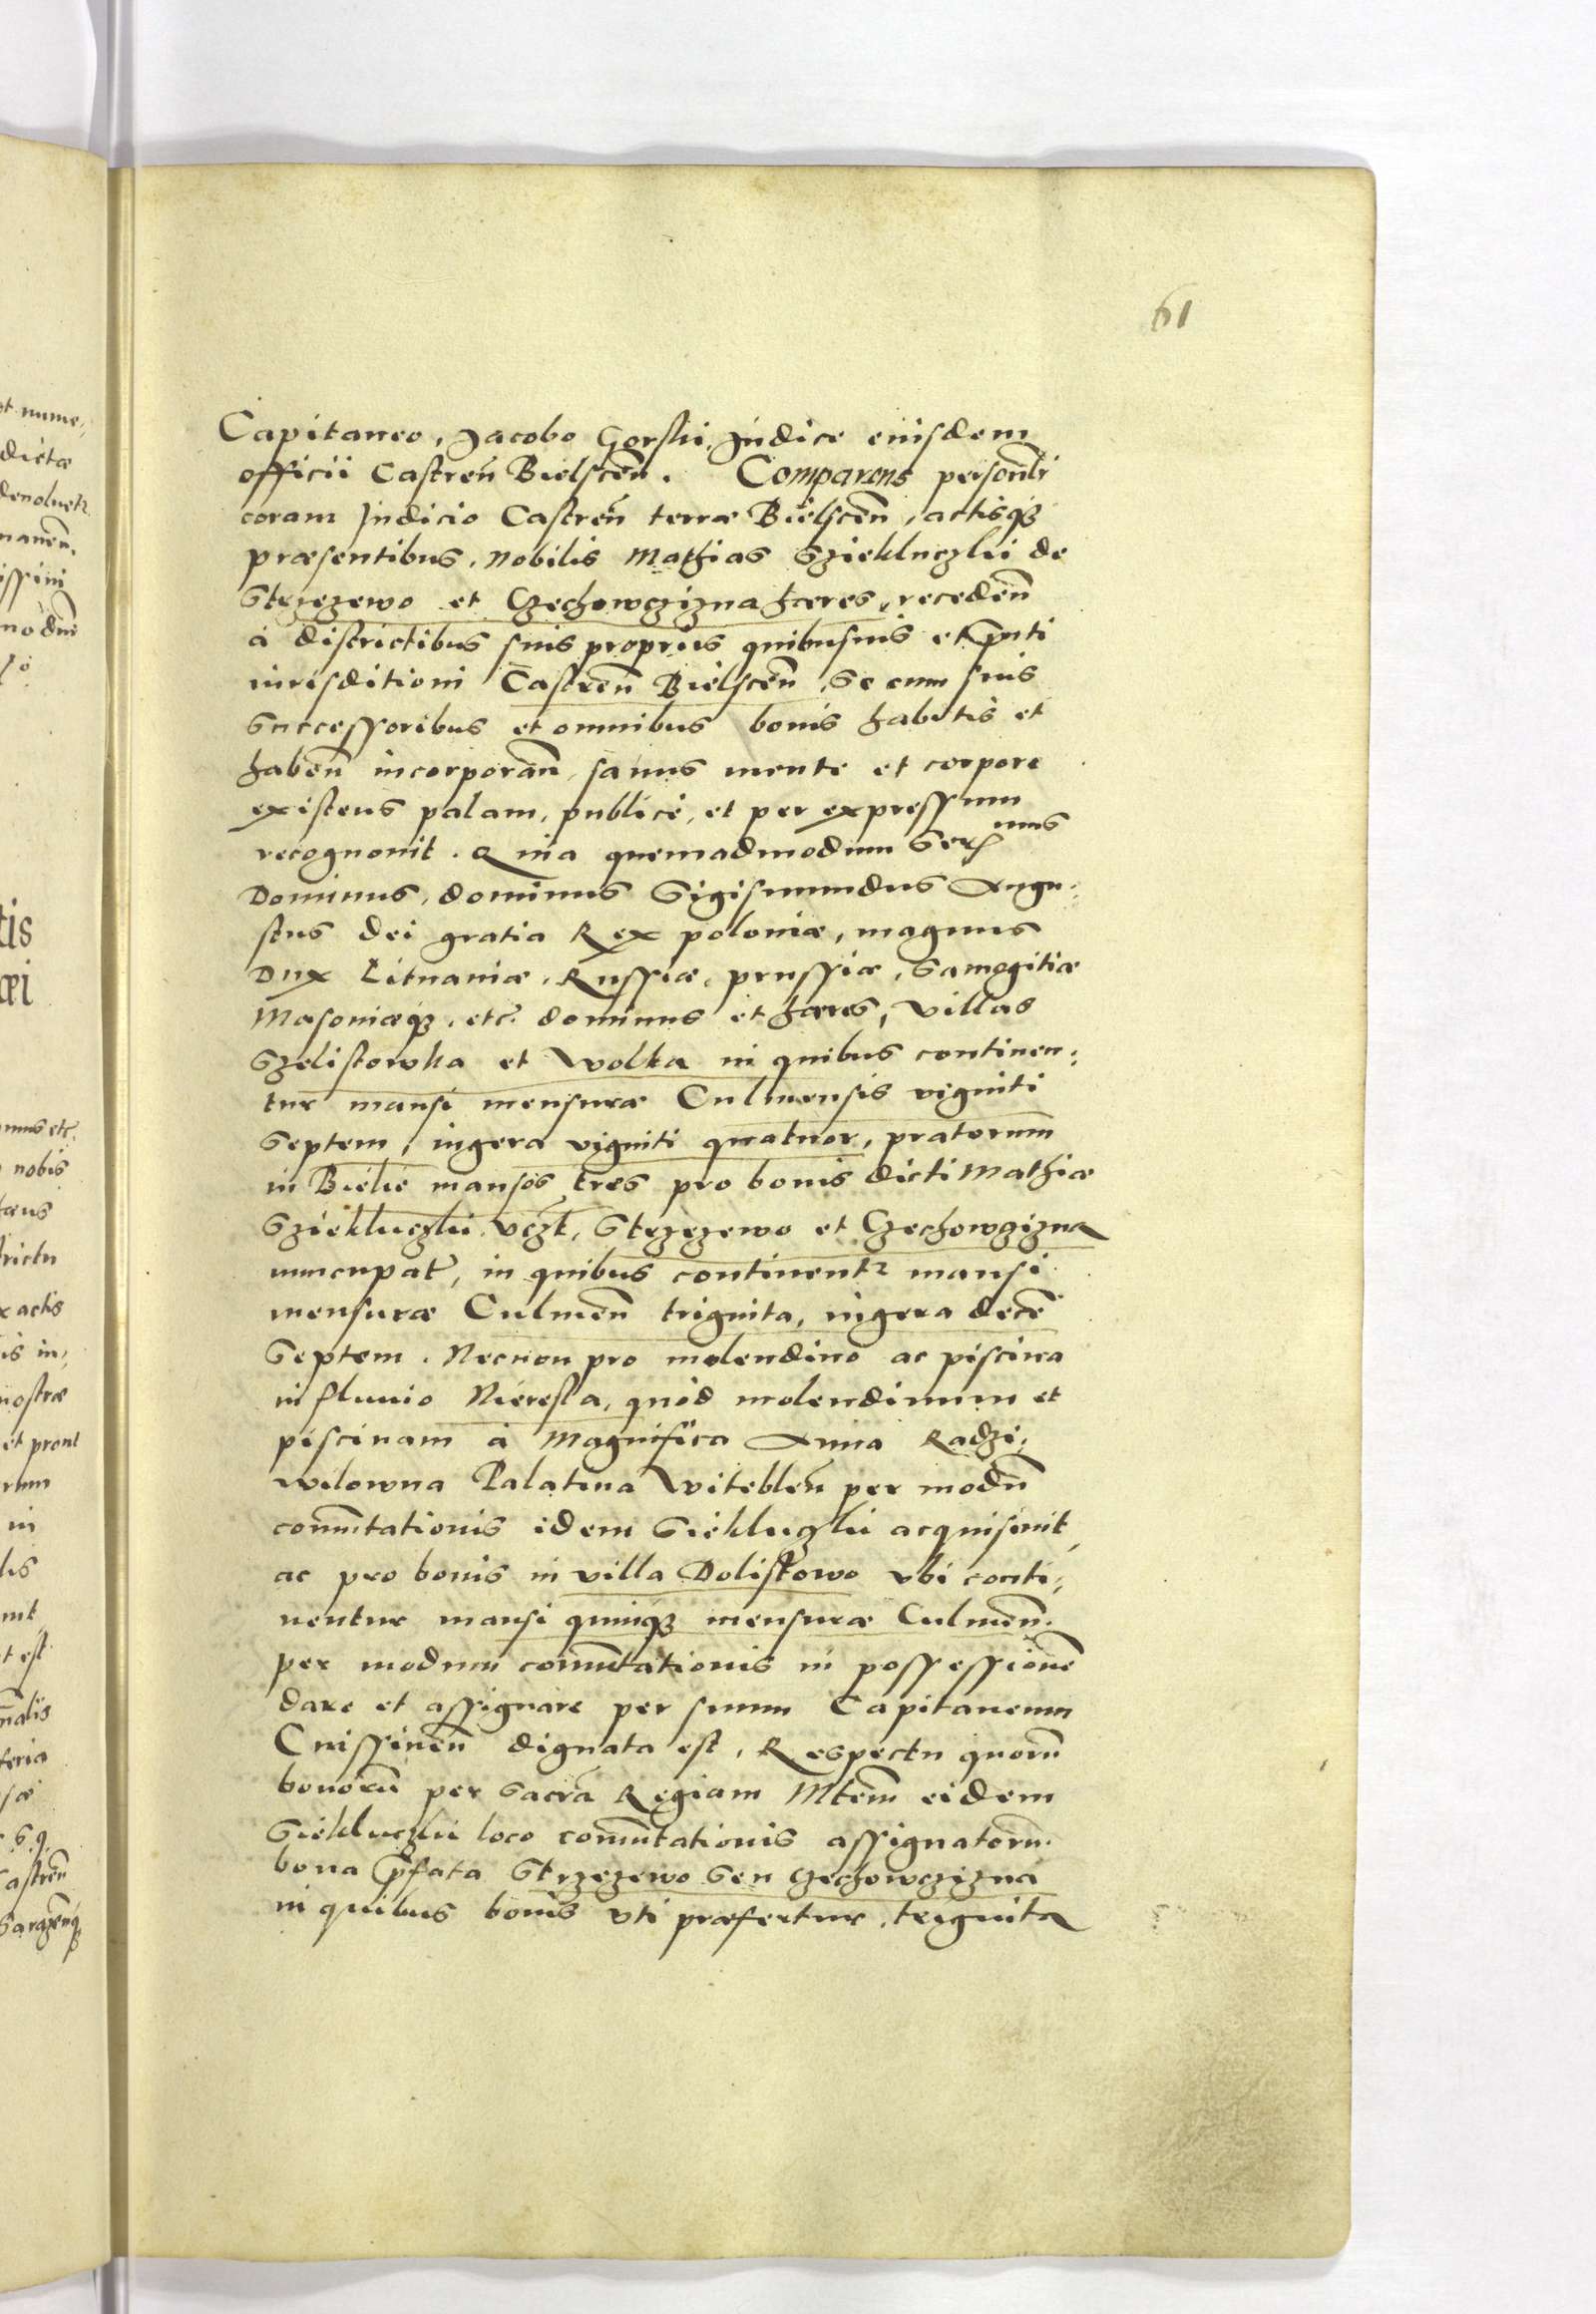 61
Capitaneo, Jacobo Gorskii, Judice eiusdem
officii Castren̄ Bielscen̄. Comparens personl̄r
coram Judicio Castren̄ terræ Bielscen̄, actisq3
præsentibus, Nobilis Mathias Sziekluczkii de
Strzezewo et Czechowczizna hæres, receden̄
à districtibus suis propriis quibusuis et p̄nti
iurisditioni Castren̄ Bielscen̄, se cum suis
successoribus et omnibus bonis habitis et
haben̄ incorporan̄, sanus mente et corpore
existens palam, publicè, et per expressum
recognouit. Quia quemadmodum Ser{mus}
Dominus, dominus Sigismundus Augu-
stus dei gratia Rex poloniæ, magnus
Dux Lituaniæ, Russiæ, prussiæ, Samogitiæ
Masouiæq3, etc̄. dominus et hæres, villas
Szelistowka et Wolka in quibus continen-
tur mansi mensuræ Culmensis viginti
septem, iugera viginti quatuor, pratorum
in Bielie mansos tres pro bonis dicti Mathiæ
SzieklucZkii vcZt, Strzezewo et Czechowczizna
nuncupat̄, in quibus continentr mansi
mensuræ Culmen̄ triginta, iugera decē
septem. Necnon pro molendino ac piscina
in fluuio Nieresla, quod molendinum et
piscinam à Magnifica Anna Radzi-
wilowna Palatina Witeblen̄ per modū
com̄utationis idem Siekluczkii acquisiuit,
ac pro bonis in villa Dolistowo vbi conti-
nentur mansi quinq3 mensuræ Culmen̄.
per modum com̄utationis in possessionē
dare et assignare per suum Capitaneum
Cnissinen̄ dignata est, Respectu quorū
bonorū per sacrā Regiam Mtem̄ eidem
Siekluczkii loco com̄utationis assignatorū.
bona p̄fata Strzezewo seu Czechowczizna
in quibus bonis vti præfertur, triginta